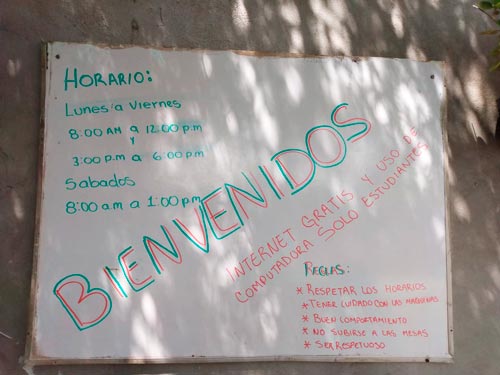 HORARIO:
Lunes a Viernes
8:00 AM a 12:00 p.m
y
3:00 p.m a 6:00 p.m
Sabados
8:00 a.m a 1:00 p.m
BIENVENIDOS
INTERNET GRATIS Y USO DE
COMPUTADORA SOLO ESTUDIANTES
REGLAS:
* RESPETAR LOS HORARIOS
* TENER CUIDADO CON LAS MAQUINAS
* BUEN COMPORTAMIENTO
* NO SUBIRSE A LAS MESAS
* SER RESPETUOSO